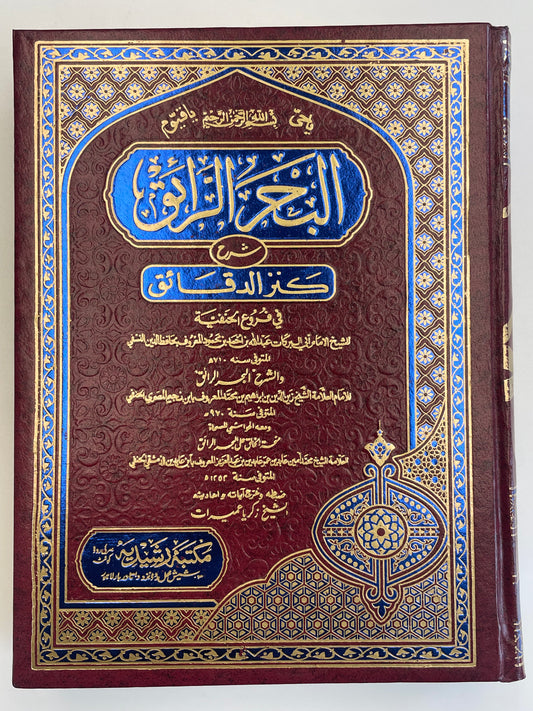 یاحیّ بسم الله الرحمن الرحيم یاقیّوم
البحر الرائق
شرح
كنز الدقائق
في فروع الحنفية
للشيخ الامام أبي البركات عبدالله بن احمد بن محمود المعروف بحافظ الدين النسفي
المتوفى سنه ٧١٠ھ
والشرح البحر الرائق
للامام العلامة الشيخ زين الدين بن ابراهيم بن محمد المعروف بابن نجيم المصري الحنفي
المتوفى سنة ٩٧٠ھ
ومعه الحواشي المسماة
منحة الخالق على البحر الرائق
العلامة الشيخ محمد أمين عابدين بن عمر عابدين بن عبد العزيز المعروف بابن عابدين الدمشقي الحنفي
المتوفى سنة ١٢٥٢ھ
ضبطه وخرج آياته و احاديثه
الشيخ زكريا عميرات
مکتبه رشیدیه سرکی روڈ کوئٹہ